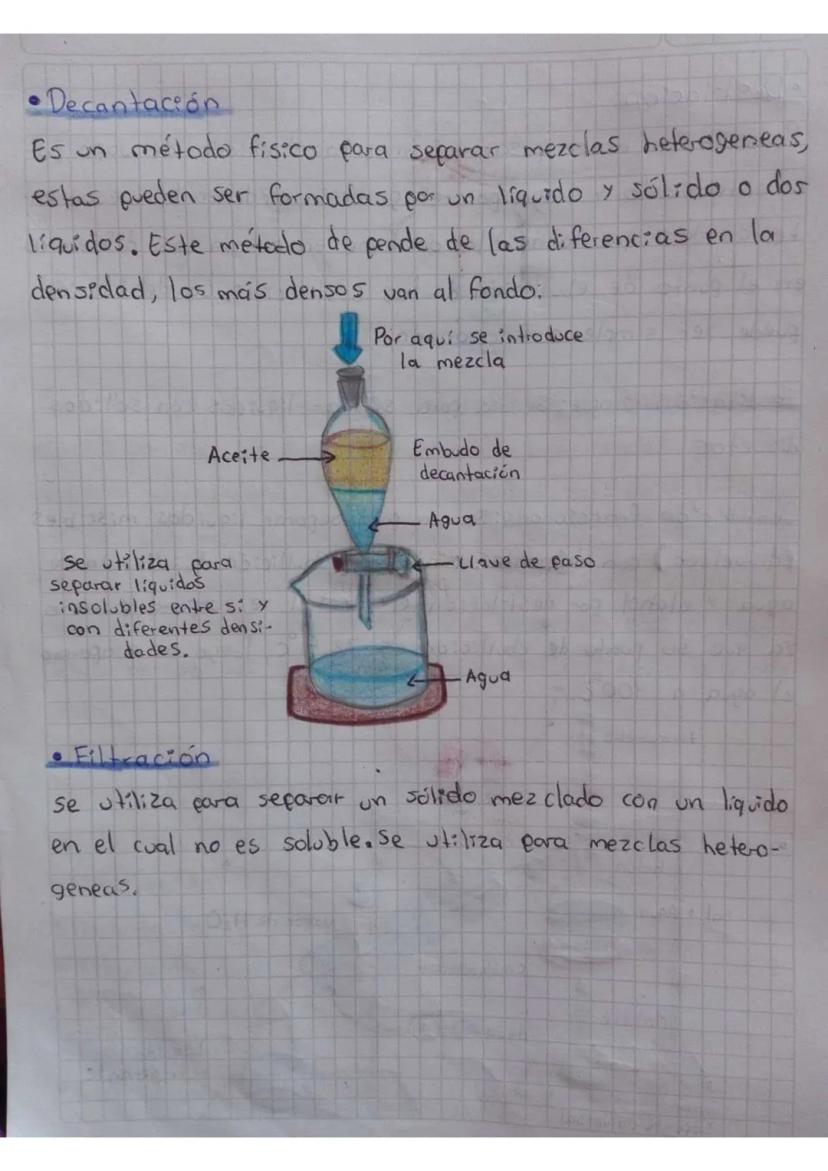 • Decantación
Es un método físico para separar mezclas heterogeneas,
estas pueden ser formadas por un líquido y sólido o dos
líquidos. Este método de pende de las diferencias en la
densidad, los más densos van al fondo.
Por aquí se introduce
la mezcla
Aceite
Embudo de
decantación
Agua
Se utiliza para
separar líquidos
insolubles entre si y
con diferentes densi-
dades.
Llave de paso
Agua
• Filtración
Se utiliza para separar un sólido mezclado con un líquido
en el cual no es soluble. Se utiliza para mezclas hetero-
geneas.